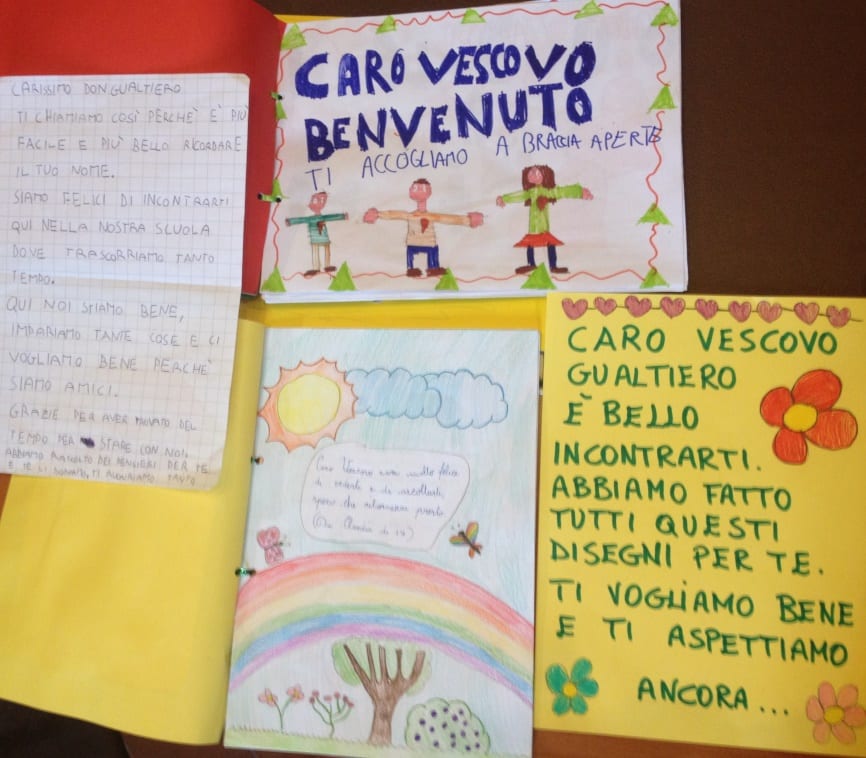 CARISSIMO DON GUALTIERO
TI CHIAMIAMO COSÌ PERCHÈ È PIÙ
FACILE E PIÙ BELLO RICORDARE
IL TUO NOME.
SIAMO FELICI DI INCONTRARTI
QUI NELLA NOSTRA SCUOLA
DOVE TRASCORRIAMO TANTO
TEMPO.
QUI NOI STIAMO BENE,
IMPARIAMO TANTE COSE E CI
VOGLIAMO BENE PERCHÈ
SIAMO AMICI.
GRAZIE PER AVER TROVATO DEL
TEMPO PER STARE CON NOI.
ABBIAMO RACCOLTO DEI PENSIERI PER TE
E TE LI DONIAMO, TI AUGURIAMO TANTO
CARO VESCOVO
BENVENUTO
TI ACCOGLIAMO A BRACCIA APERTE
Caro Vescovo sono molto felice
di vederti e di ascoltarti,
spero che ritornerai presto.
CARO VESCOVO
GUALTIERO
È BELLO
INCONTRARTI.
ABBIAMO FATTO
TUTTI QUESTI
DISEGNI PER TE.
TI VOGLIAMO BENE
E TI ASPETTIAMO
ANCORA...